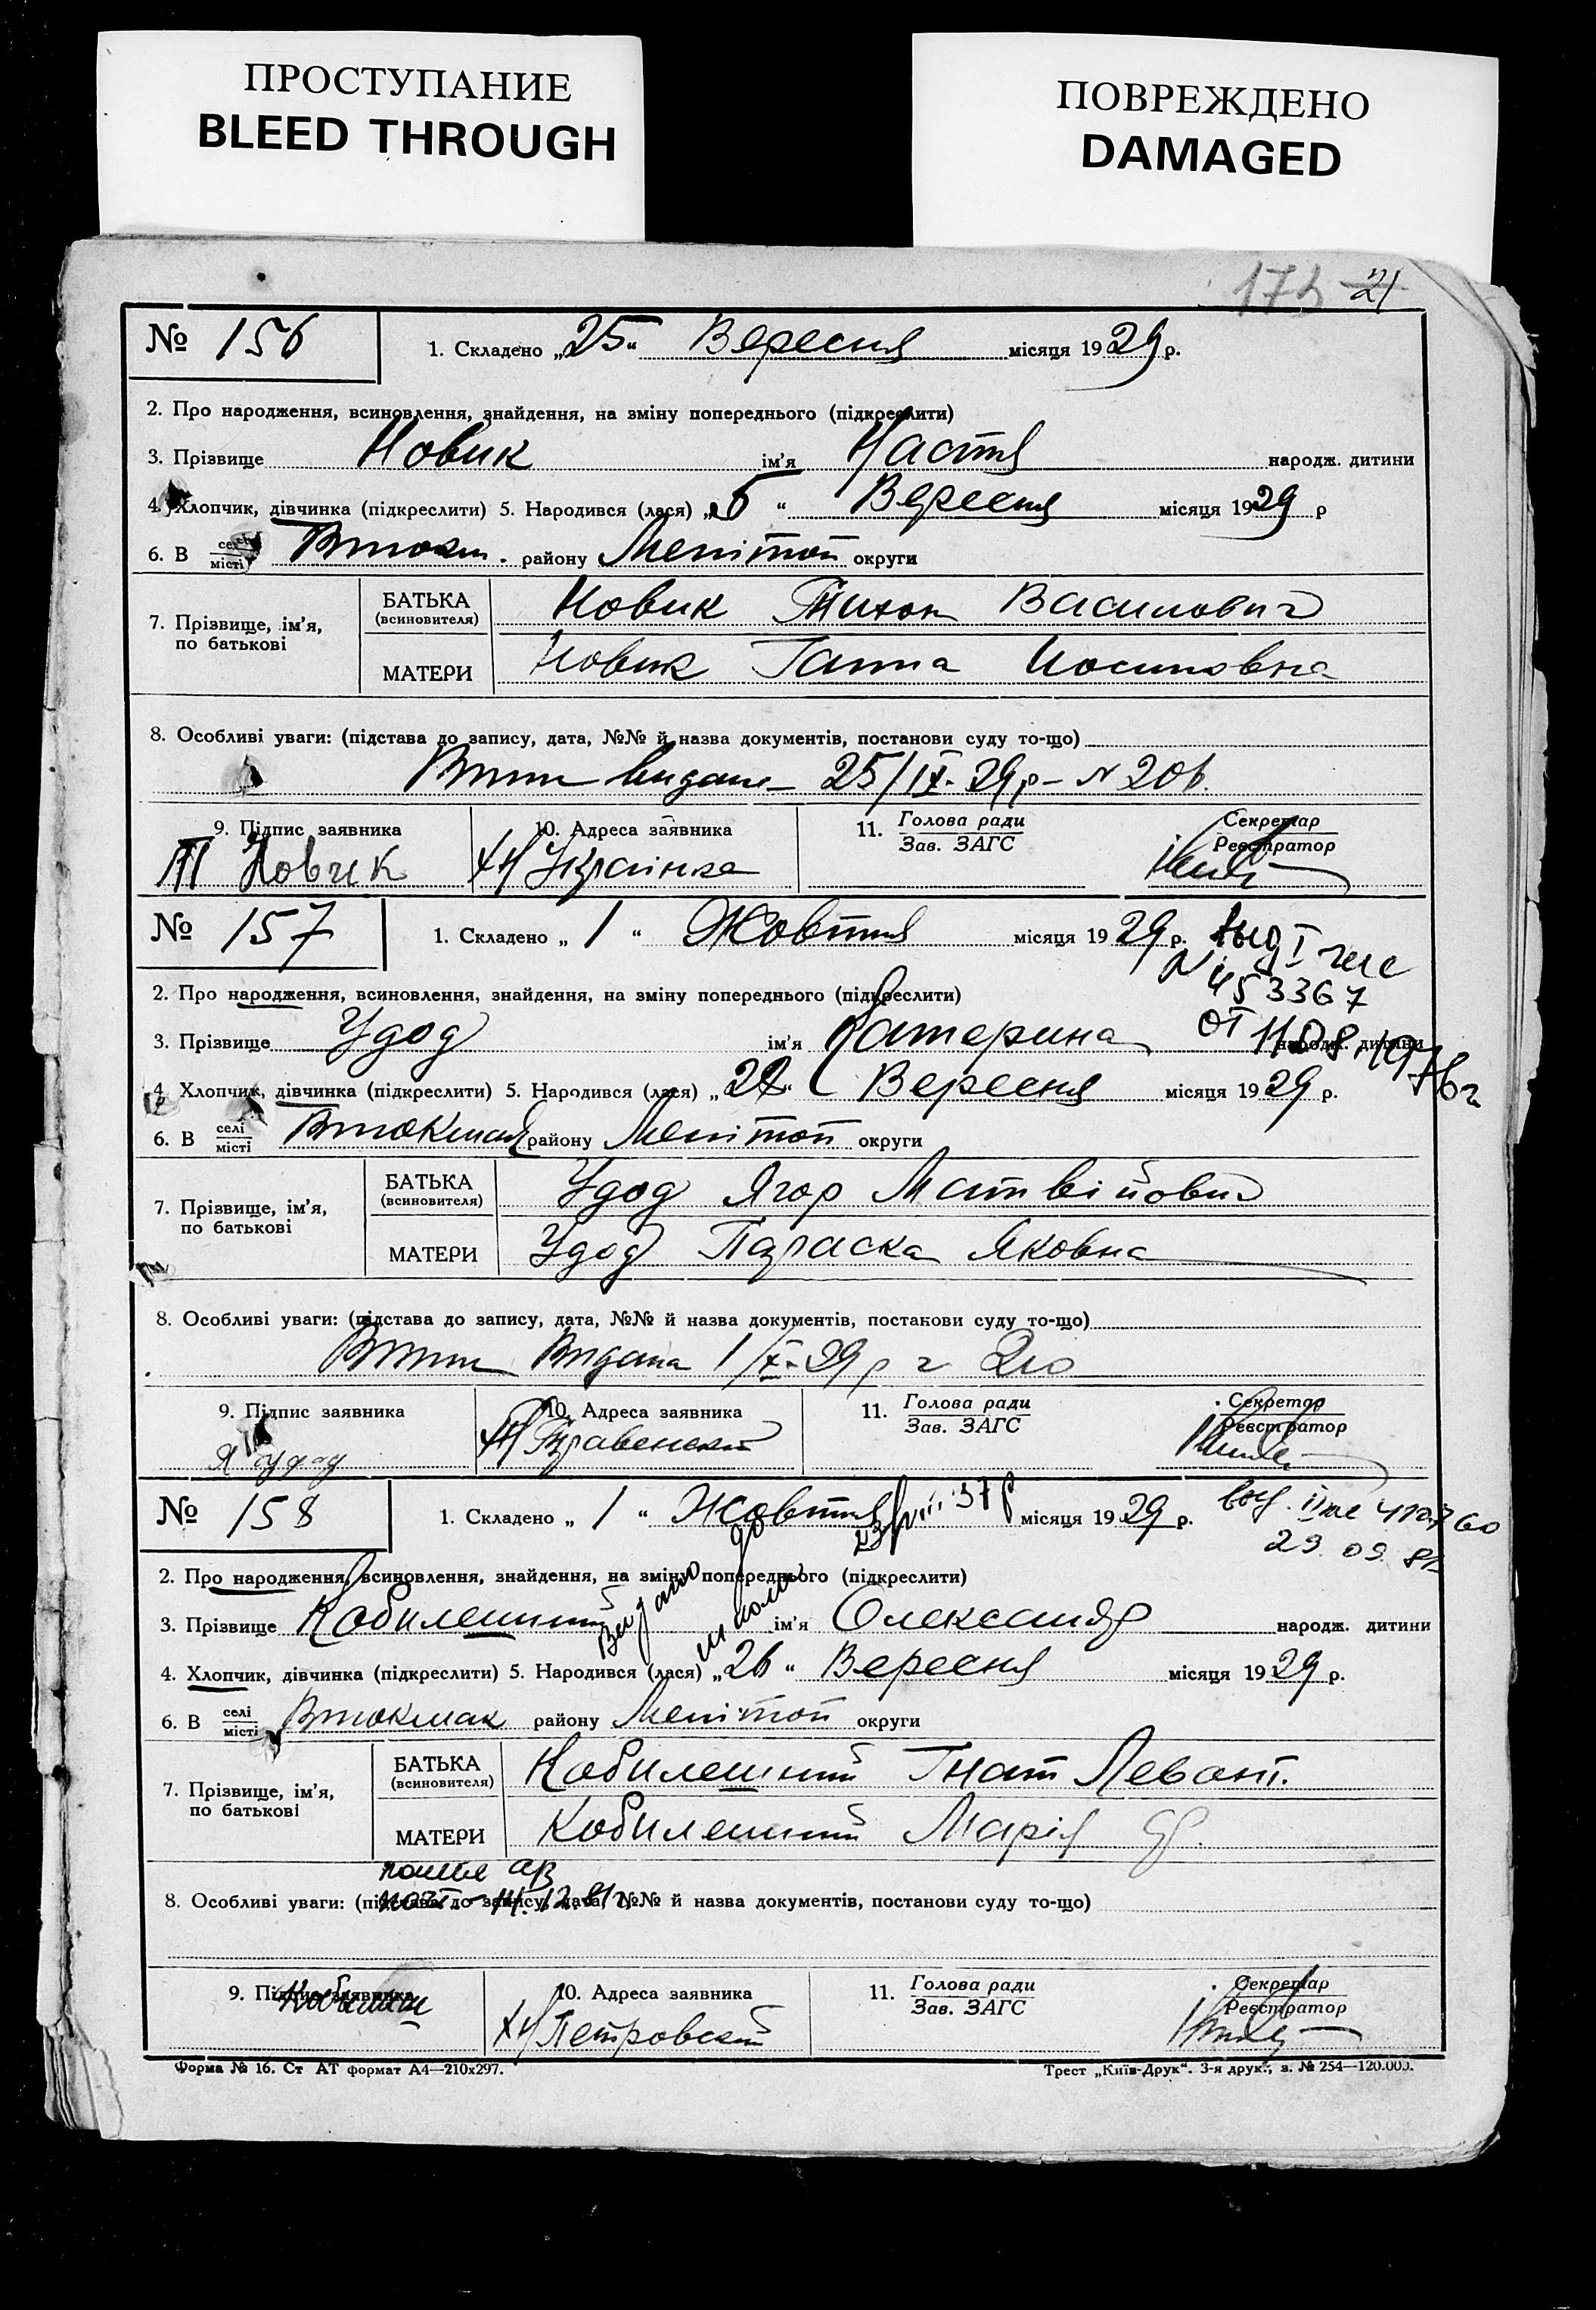 ПРОСТУПАНИЕ
BLEED THROUGH
ПОВРЕЖДЕНО
DAMAGED
21
№ 156
1. Складено „25“ Вересня місяця 1929 р.
2. Про народження, всиновлення, знайдення, на зміну попереднього (підкреслити)
3. Прізвище Новик ім'я Настя народж. дитини
4. Хлопчик, дівчинка (підкреслити) 5. Народився (лася) „6“ Вересня місяця 1929 р
6. В селі місті району Мелітоп округи
7. Прізвище, ім'я, по батькові
БАТЬКА (всиновителя) Новик Тихон Василович
МАТЕРИ Новик Ганна Йосиповна
8. Особливі уваги: (підстава до запису, дата, №№ й назва документів, постанови суду то-що)
видана 25/IX-29 р – N 206.
9. Підпис заявника
10. Адреса заявника
11. Голова ради Зав. ЗАГС
Секретар Реєстратор
Т Новик
Українка
№ 157
1. Складено „1“ Жовтня місяця 1929 р.
выд I
N 453367
от 11.08.1976 г
2. Про народження, всиновлення, знайдення, на зміну попереднього (підкреслити)
3. Прізвище Удод ім'я Катерина народж. дитини
4. Хлопчик, дівчинка (підкреслити) 5. Народився (лася) Вересня місяця 1929 р.
6. В селі місті району Мелітоп округи
7. Прізвище, ім'я, по батькові
БАТЬКА (всиновителя) Удод Ягор Матвійович
МАТЕРИ Удод Параска Яковна
8. Особливі уваги: (підстава до запису, дата, №№ й назва документів, постанови суду то-що)
Видана 1/X-29 р 210
9. Підпис заявника
10. Адреса заявника
11. Голова ради Зав. ЗАГС
Секретар Реєстратор
Я Удод
№ 158
1. Складено „1“ Жовтня місяця 1929 р.
23/VIII 37 р
Видано до школи
29.09.81
2. Про народження, всиновлення, знайдення, на зміну попереднього (підкреслити)
3. Прізвище Кобилешний ім'я Олександр народж. дитини
4. Хлопчик, дівчинка (підкреслити) 5. Народився (лася) „26“ Вересня місяця 1929 р.
6. В селі місті Втокмак району Мелітоп округи
7. Прізвище, ім'я, по батькові
БАТЬКА (всиновителя) Кобилешний Гнат Левонт.
МАТЕРИ Кобилешний Марія
8. Особливі уваги: (підстава до запису, дата, №№ й назва документів, постанови суду то-що)
9. Підпис заявника
10. Адреса заявника
11. Голова ради Зав. ЗАГС
Секретар Реєстратор
Петровский
Форма № 16. Ст АТ формат А4—210х297.
Трест „Київ-Друк“. 3-я друк., з. № 254—120.000.